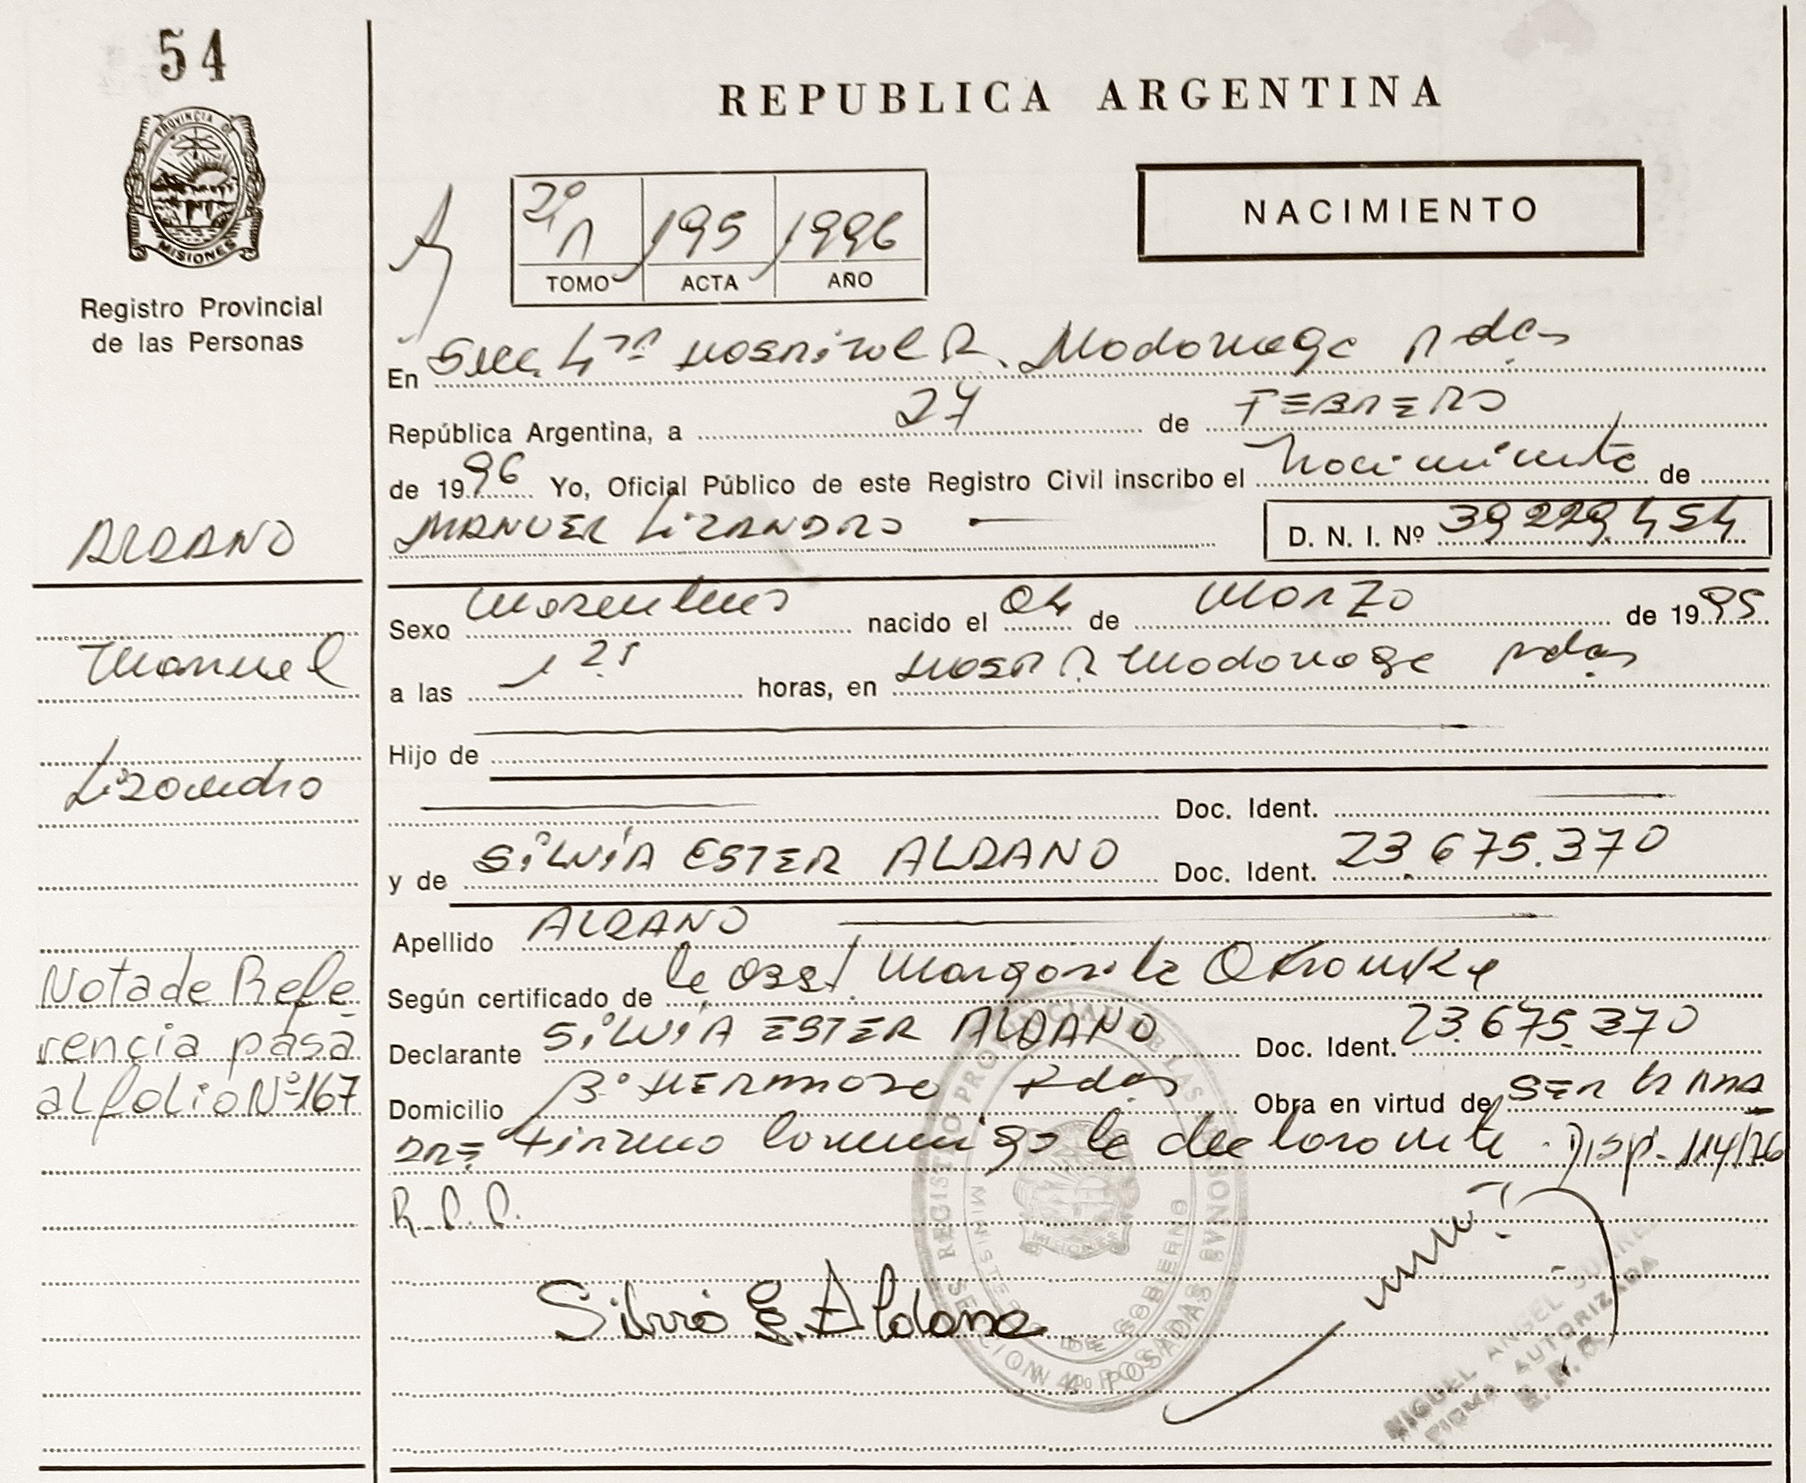 54
PROVINCIA DE
MISIONES
Registro Provincial
de las Personas
REPUBLICA ARGENTINA
NACIMIENTO
2º 195 1996
TOMO ACTA AÑO
En Secc. 4ta Hospital R. Madariaga Pdas
República Argentina, a 27 de FEBRERO
de 1996 Yo, Oficial Público de este Registro Civil inscribo el Nacimiento de
MANUEL LIZANDRO D. N. I. Nº 39.229.454
ALDANO
Sexo masculino nacido el 04 de MARZO de 1995
Manuel
a las 1 25 horas, en HOSP R Madariaga Pdas
Hijo de
Lizandro
Doc. Ident.
y de SILVIA ESTER ALDANO Doc. Ident. 23.675.370
Apellido ALDANO
Según certificado de la Obst. Margarita
Declarante SILVIA ESTER ALDANO Doc. Ident. 23.675.370
Domicilio Bº HERMOSO Pdas Obra en virtud de SER LA MA
DRE Firma conmigo la declarante. Disp. 114/76
R.P.P.
Nota de Refe
rencia pasa
al folio Nº 167
Silvia E. Aldana
REGISTRO PROVINCIAL DE LAS PERSONAS
MINISTERIO DE GOBIERNO
SECCION 4º POSADAS
MISIONES
MIGUEL ANGEL
FIRMA AUTORIZADA